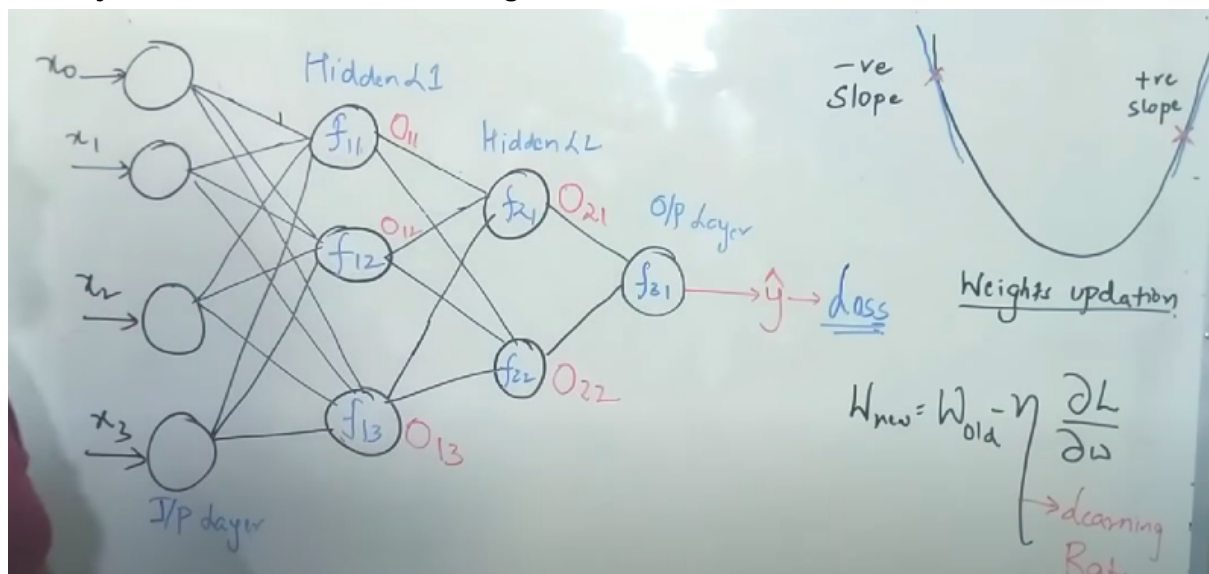 x0
x1
x2
x3
I/P Layer
Hidden L1
f11
O11
f12
O12
f13
O13
Hidden L2
f21
O21
f22
O22
O/P Layer
f31
ŷ → Loss
-ve
Slope
+ve
slope
Weights updation
Wnew = Wold - η ∂L/∂w
Learning